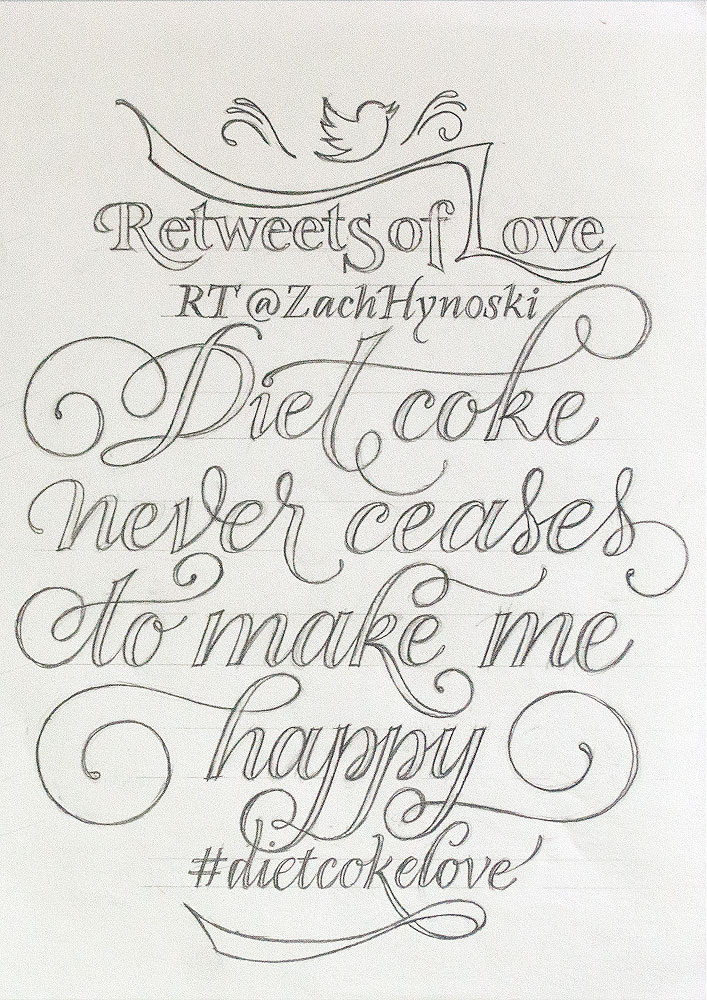 Retweets of Love
RT @ZachHynoski
Diet coke
never ceases
to make me
happy
#dietcokelove